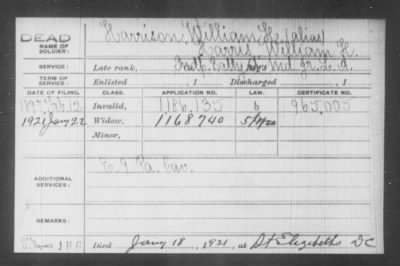 DEAD
NAME OF SOLDIER:
Harrison, William H. (alias)
Harris, William H.
SERVICE:
Late rank, Ind. Lt. A.
TERM OF SERVICE:
Enlisted , 1 Discharged , 1
DATE OF FILING. CLASS. APPLICATION NO. LAW. CERTIFICATE NO.
Invalid, 1186,135 965,005
1921 Jany 22 Widow, 1168740
Minor,
ADDITIONAL SERVICES:
9 Pa. Cav.
REMARKS:
Died Jany 18, 1921, at St Elizabeths DC